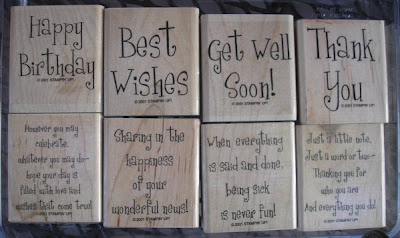 Happy
Birthday
©2001 STAMPIN' UP!
Best
Wishes
©2001 STAMPIN' UP!
Get Well
Soon!
©2001 STAMPIN' UP!
Thank
You
©2001 STAMPIN' UP!
However you may
celebrate,
whatever you may do--
hope your day is
filled with love and
wishes that come true!
©2001 STAMPIN' UP!
Sharing in the
happiness
of your
wonderful news!
©2001 STAMPIN' UP!
When everything
is said and done,
being sick
is never fun!
©2001 STAMPIN' UP!
Just a little note,
Just a word or two--
Thanking you for
who you are
And everything you do!
©2001 STAMPIN' UP!